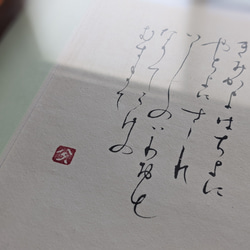 きみかよはちよに
やちよにさゝれ
いしのいわほと
なりてこけの
むすまて